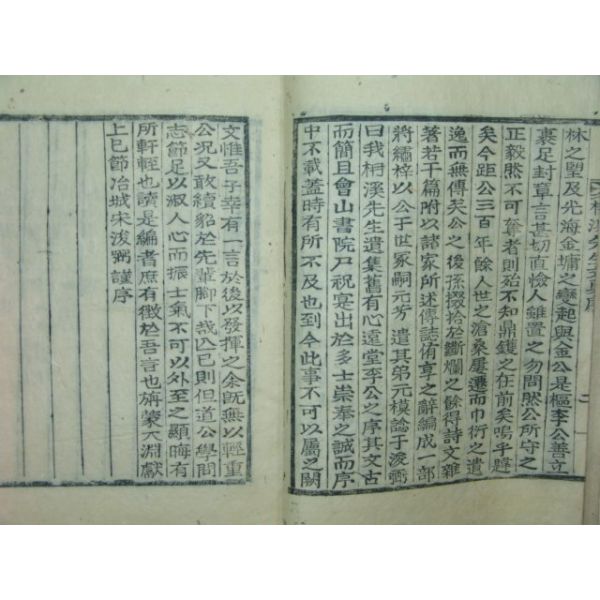 林之望及光海金墉之變起與金公是樞李公善立
裹足封章言甚切直憸人雖置之勿問然公所守之
正毅然不可奪者則始不知鼎鑊之在前矣嗚乎韙
矣今距公三百年餘人世之滄桑屢遷而巾衍之遺
逸而無傳矣公之後孫掇拾於斷爛之餘得詩文雜
著若干篇附以諸家所述傳誌侑享之辭編成一部
將繡梓以公于世家嗣元芳遣其弟元模諗于浚弼
曰我桐溪先生遺集舊有心遠堂李公之序其文古
而簡且會山書院尸祝寔出於多士崇奉之誠而序
中不載蓋時有所不及也到今此事不可以屬之闕
文惟吾子幸有一言於後以發揮之余旣無以輕重
公況又敢續貂於先輩脚下哉已則但道公學問
志節足以淑人心而振士氣不可以外至之顯晦有
所軒輊也讀是編者庶有徵於吾言也旃蒙大淵獻
上巳節冶城宋浚弼謹序